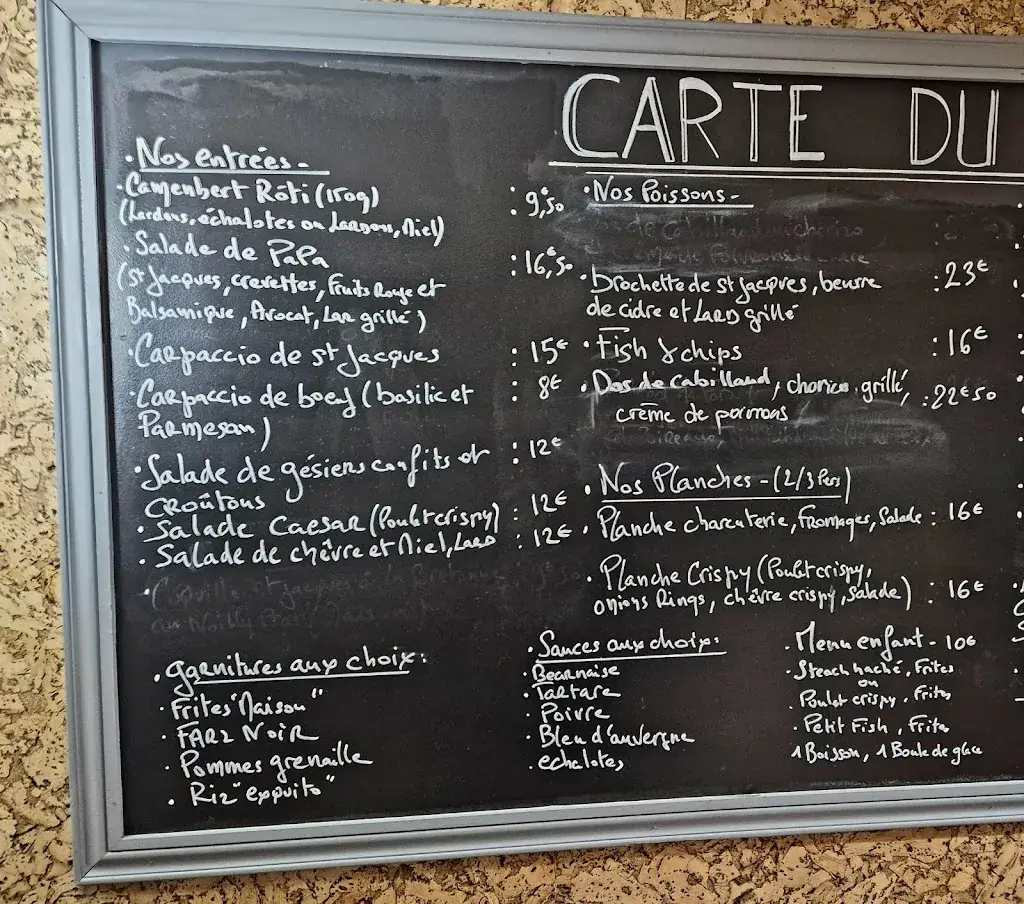 CARTE DU
· Nos entrées -
· Camenbert Rôti (150g) : 9,€50
(Lardons, échalotes ou Lardons, Miel)
· Salade de PaPa : 16,€50
(St Jacques, crevettes, Fruits Rouge et
Balsamique, Avocat, Lar grillé)
· Carpaccio de St Jacques : 15€
· Carpaccio de boeuf (basilic et : 8€
Parmesan)
· Salade de gésiers confits et : 12€
croûtons
· Salade Caesar (Poulet crispy) : 12€
· Salade de chèvre et Miel, Lard : 12€
· Nos Poissons -
· Brochette de St Jacques, beurre : 23€
de cidre et Lard grillé
· Fish & chips : 16€
· Dos de Cabillaud, chorizo grillé, : 22€50
crème de poivrons
· Nos Planches - (2/3 Pers)
· Planche charcuterie, Fromages, Salade : 16€
· Planche Crispy (Poulet crispy,
onions Rings, chèvre crispy, Salade) : 16€
· garnitures aux choix :
· Frites "Maison"
· FARZ NOIR
· Pommes grenaille
· Riz "exquito"
· Sauces aux choix :
· Bearnaise
· Tartare
· Poivre
· Bleu d'auvergne
· echalotes
· Menu enfant - 10€
· Steach haché, Frites
ou
· Poulet crispy, Frites
· Petit Fish, Frite
1 Boisson, 1 Boule de glace